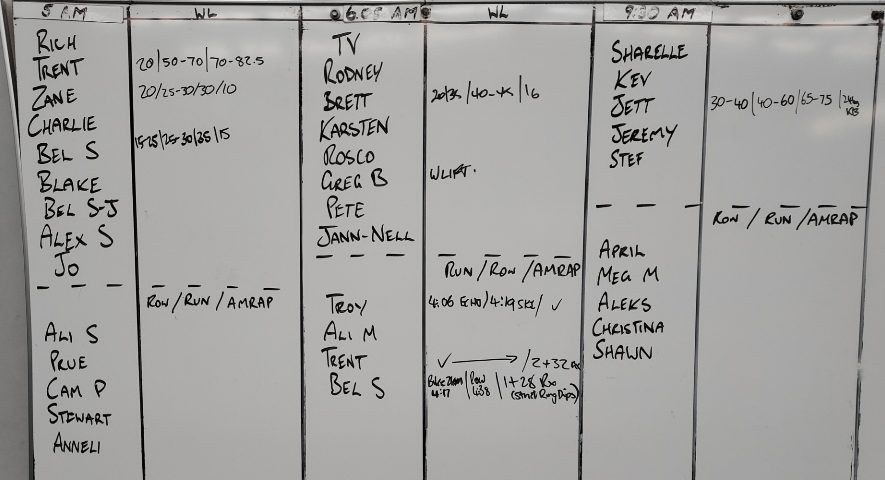 5 AM WL
RICH
TRENT 20/50-70/70-82.5
ZANE 20/25-30/30/10
CHARLIE
BEL S 15-25/25-30/35/15
BLAKE
BEL S-J
ALEX S
JO
ROW/RUN/AMRAP
ALI S
PRUE
CAM P
STEWART
ANNELI
AM WL
TV
RODNEY
BRETT
KARSTEN
ROSCO
GREG B WLIFT.
PETE
JANN-NELL
RUN/ROW/AMRAP
TROY 4:06 ECHO/4:19 SKI/ ✓
ALI M
TRENT ✓ → /2+32
BEL S Row 1+28 Rx
(Strict Ring Dips)
9:30 AM
SHARELLE
KEV
JETT 30-40/40-60/65-75/
JEREMY
STEF
ROW/RUN/AMRAP
APRIL
MEG M
ALEKS
CHRISTINA
SHAWN